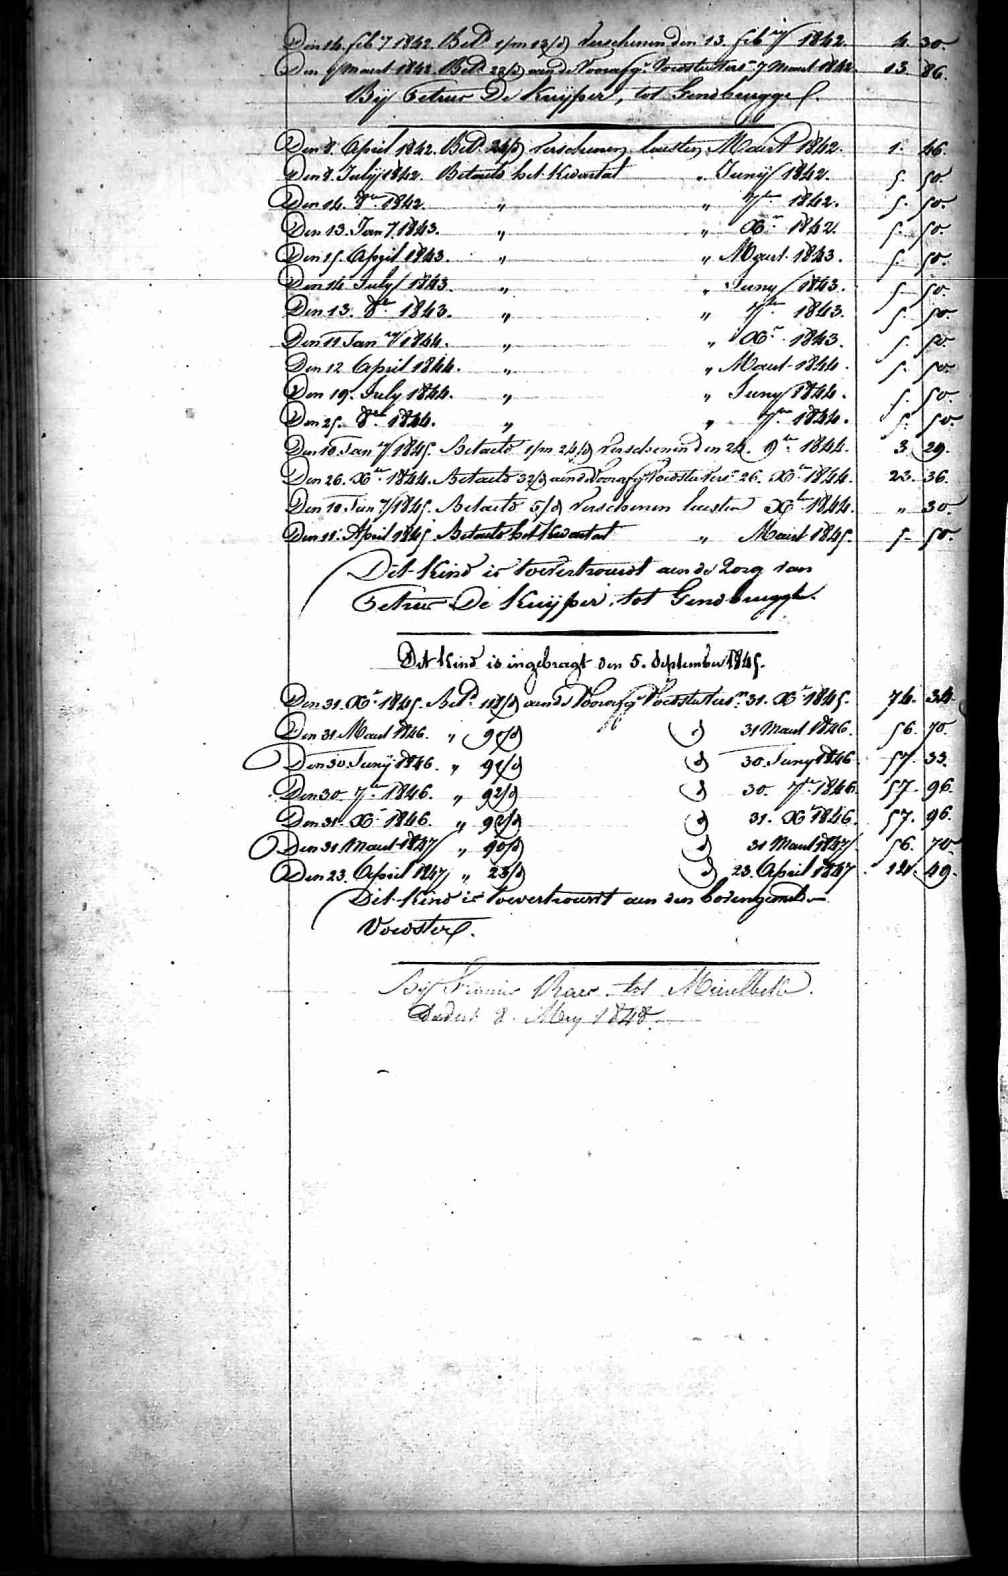 Den 14. feb.ry 1842. Bet.d 1/m 13/d verschenen den 13. feb.ry 1842. 4. 30.
Den 9 Maart 1842. Bet.d 23/d aan de Voorafg.e Voedsters 7 Maart 1842. 13. 86.
Bij Petrus De Kuijper, tot Gendbrugge.
Den 8. April 1842. Bet.d 24/d verschenen laesten Maart 1842. 1. 46.
Den 8. Julij 1842. Betaeld het Kwartal " Junij 1842. 5. 50.
Den 14. 8.er 1842. " " 7.er 1842. 5. 50.
Den 13. Jan.ry 1843. " " X.r 1842. 5. 50.
Den 15. April 1843. " " Maart 1843. 5. 50.
Den 14. July 1843. " " Juny 1843. 5. 50.
Den 13. 8.er 1843. " " 7.er 1843. 5. 50.
Den 11 Jan.ry 1844. " " X.r 1843. 5. 50.
Den 12 April 1844. " " Maart 1844. 5. 50.
Den 19. July 1844. " " Juny 1844. 5. 50.
Den 25. 8.er 1844. " " 7.er 1844. 5. 50.
Den 10 Jan.ry 1845. Betaeld 1/m 24/d verschenen den 24. 9.er 1844. 3. 29.
Den 26. X.er 1844. Betaeld 32/d aan de Voorafg. Voedsters 26. X.er 1844. 23. 36.
Den 10 Jan.ry 1845. Betaeld 5/d verschenen laesten X.er 1844. " 30.
Den 11. April 1845. Betaeld het Kwartal " Maart 1845. 5. 50.
Dit Kind is toevertrouwd aen de Zorg van
Petrus De Kuijper, tot Gendbrugge.
Dit Kind is ingebragt den 5. September 1845.
Den 31. X.r 1845. Bet.d 118/d aen de Voorafg. Voedsters 31. X.r 1845. 74. 34.
Den 31 Maart 1846. " 90/d d 31 Maart 1846. 56. 70.
Den 30 Junij 1846. " 91/d d 30. Juny 1846. 57. 33.
Den 30. 7.er 1846. " 92/d d 30. 7.er 1846. 57. 96.
Den 31. X.r 1846. " 92/d d 31. X.r 1846. 57. 96.
Den 31 Maart 1847 " 90/d d 31 Maart 1847 56. 70
Den 23. April 1847 " 23/d d 23. April 1847. 14. 49.
Dit Kind is toevertrouwd aen den bovengemelde
Voedster.
Bij Francis tot
8. Mey 1848.